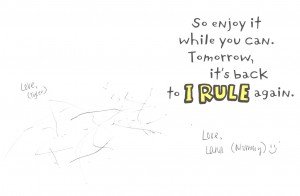 So enjoy it
while you can.
Tomorrow,
it's back
to I RULE again.
Love,
Love,